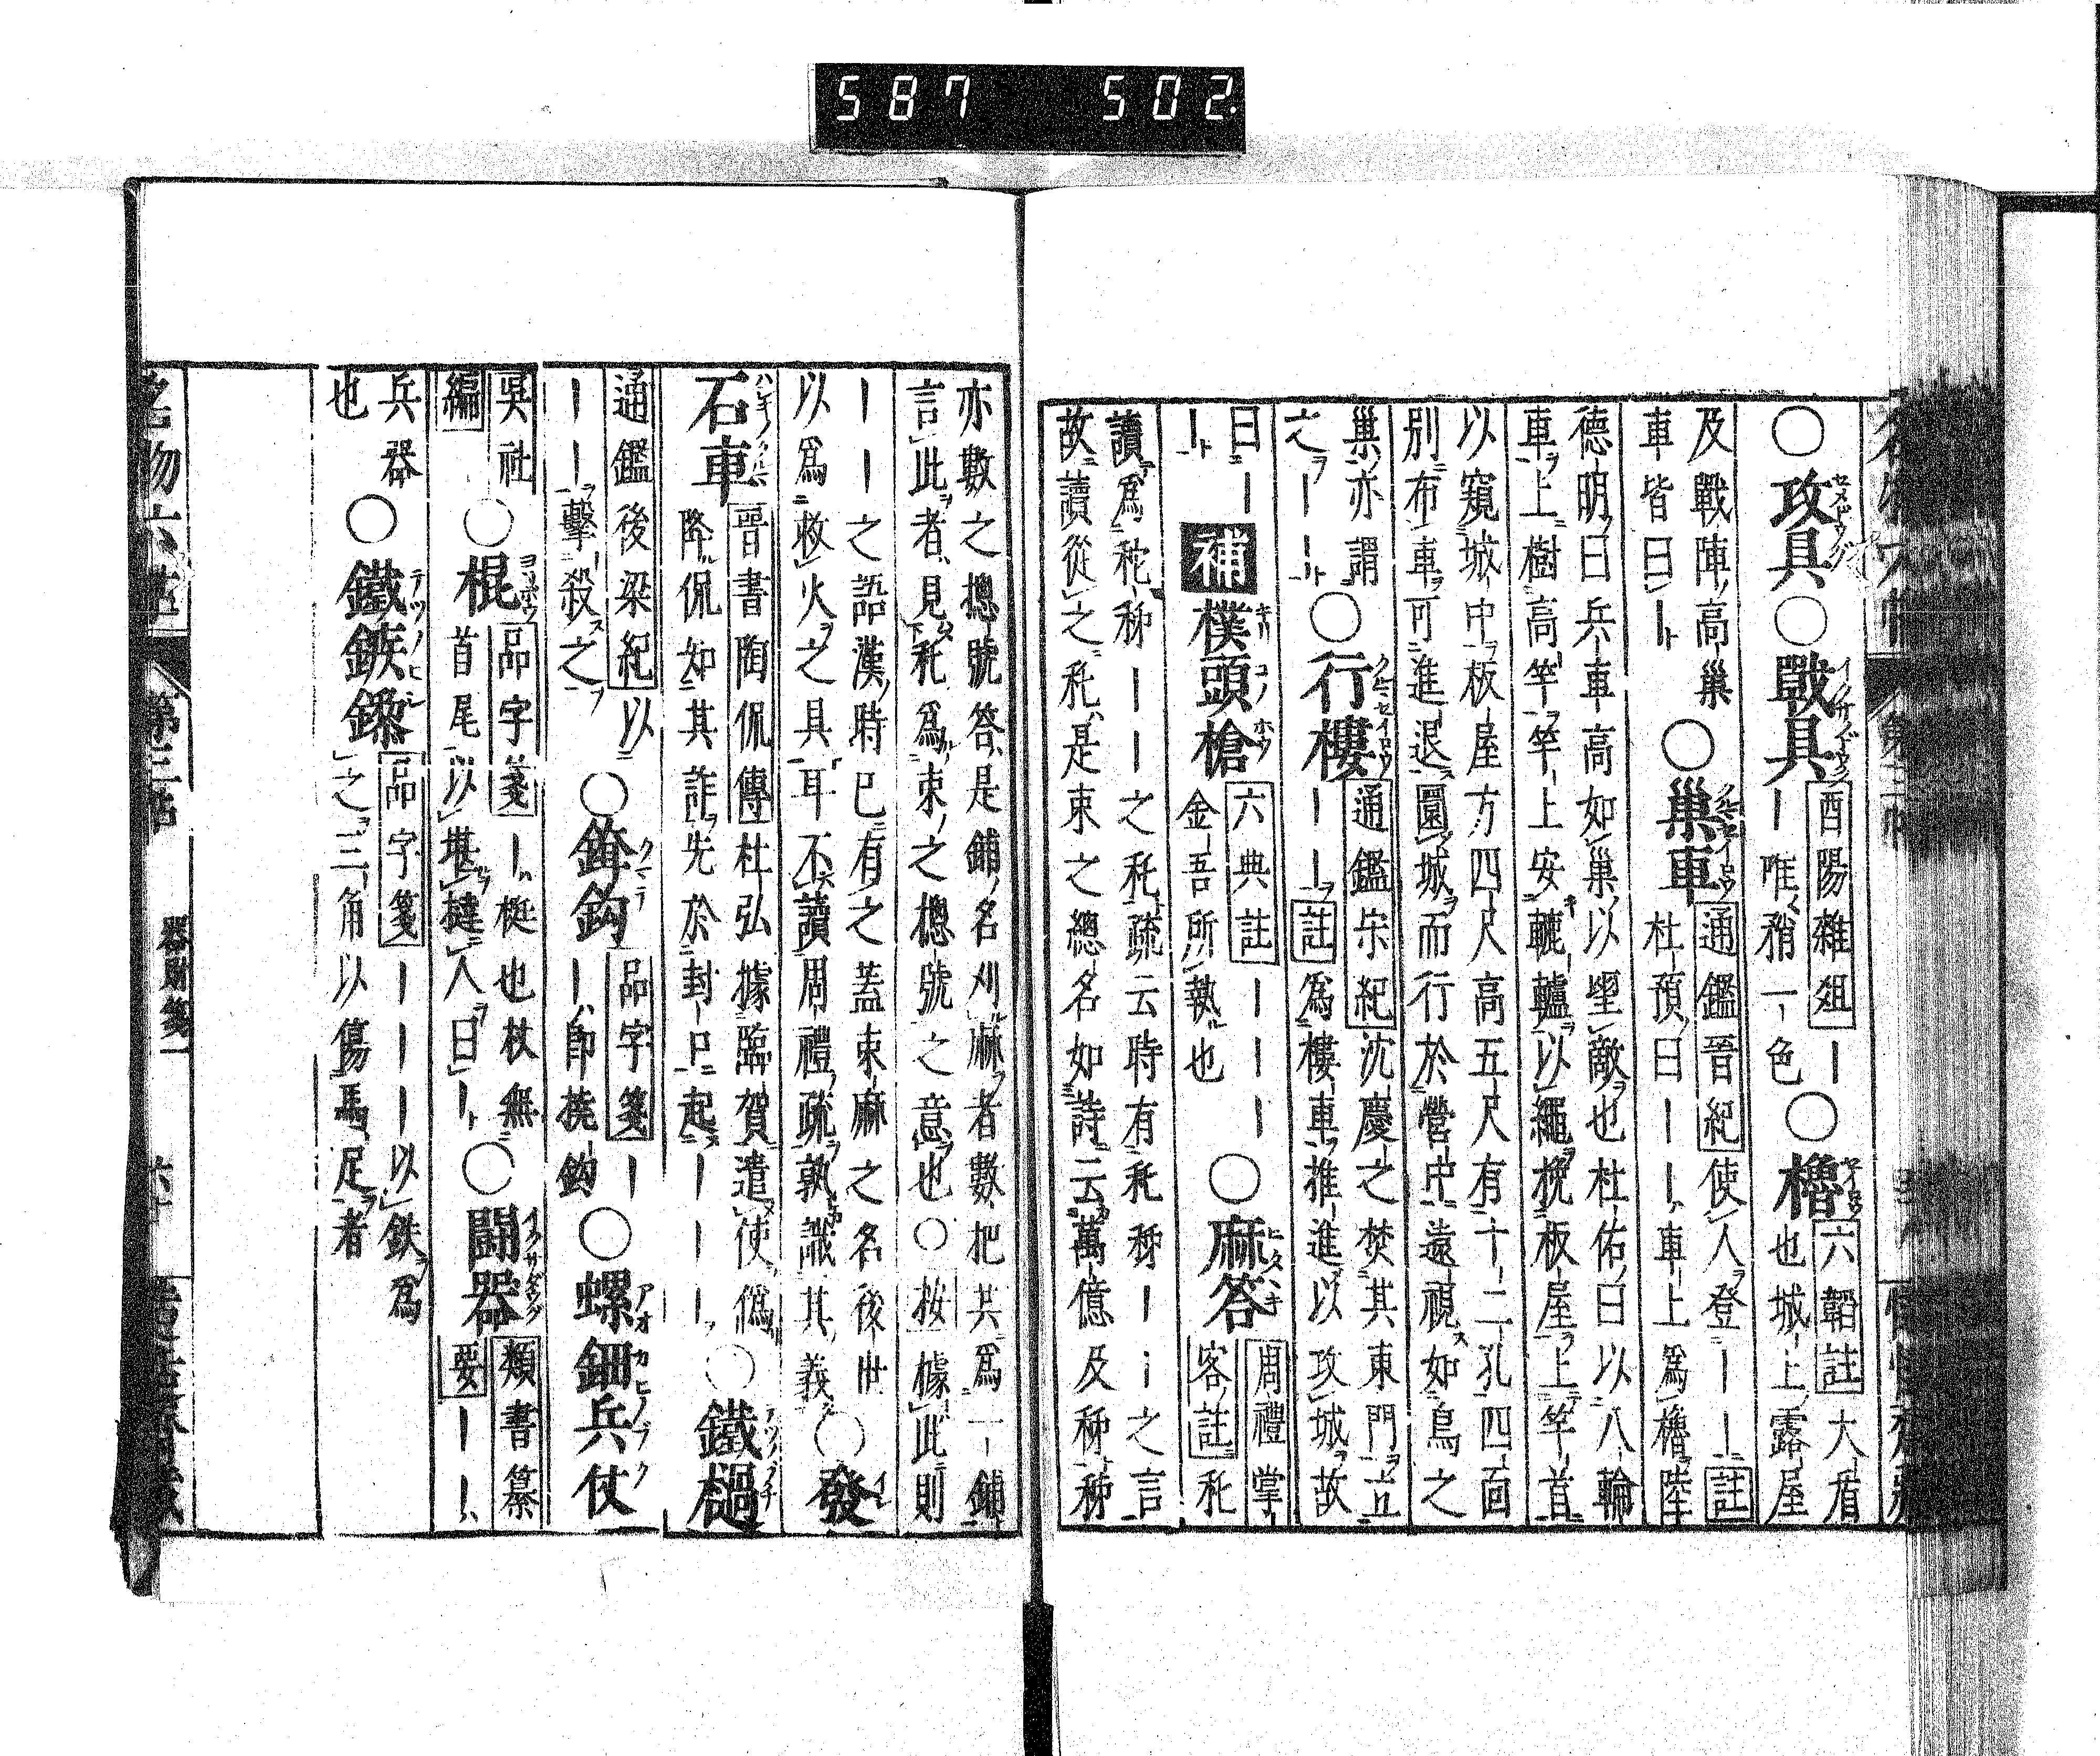 587 502
○攻具○戰具
酉陽雜俎｜
｜唯稍一色
○櫓
六韜註大盾
也城上露屋
及戰陣高巢
車皆曰｜
○巢車
通鑑晉紀使人登｜｜註
杜預曰｜｜車上爲櫓陸
德明曰兵車高如巢以望敵也杜佑曰以八輪
車上樹高竿竿上安轆轤以繩挽板屋上竿首
以窺城中板屋方四尺高五尺有十二孔四面
別布車可進退圍城而行於營中遠視如鳥之
巢亦謂
之｜｜
○行樓
通鑑宋紀沈慶之焚其東門立
｜｜註爲樓車推進以攻城故
曰｜
｜
補
樸頭槍
六典註｜｜｜
金吾所執也
○麻答
周禮掌
客註秅
讀爲秅秭｜｜之秅疏云時有秅秭｜｜之言
故讀從之秅是束之總名如詩云萬億及秭秭
亦數之摠號答是鋪名刈麻者數把共爲一鋪
言此者見秅爲束之摠號之意也○按據此則
｜｜之語漢時已有之蓋束麻之名後世
以爲救火之具耳不讀周禮疏孰識其義
○發
石車
晉書陶侃傳杜弘據臨賀遣使僞
降侃知其詐先於封口起｜｜｜
○鐵檛
通鑑後梁紀以
｜｜擊殺之
○䤶鈎
品字箋｜
｜卽撓鈎
○螺鈿兵仗
吳社
編
○棍
品字箋｜梃也杖無
首尾以堪撻人曰｜
○鬭器
類書纂
要｜｜
兵器
也
○鐵鏃鑗
品字箋｜｜｜以鉄爲
之三角以傷馬足者
名物六帖 第三帖 器財箋一